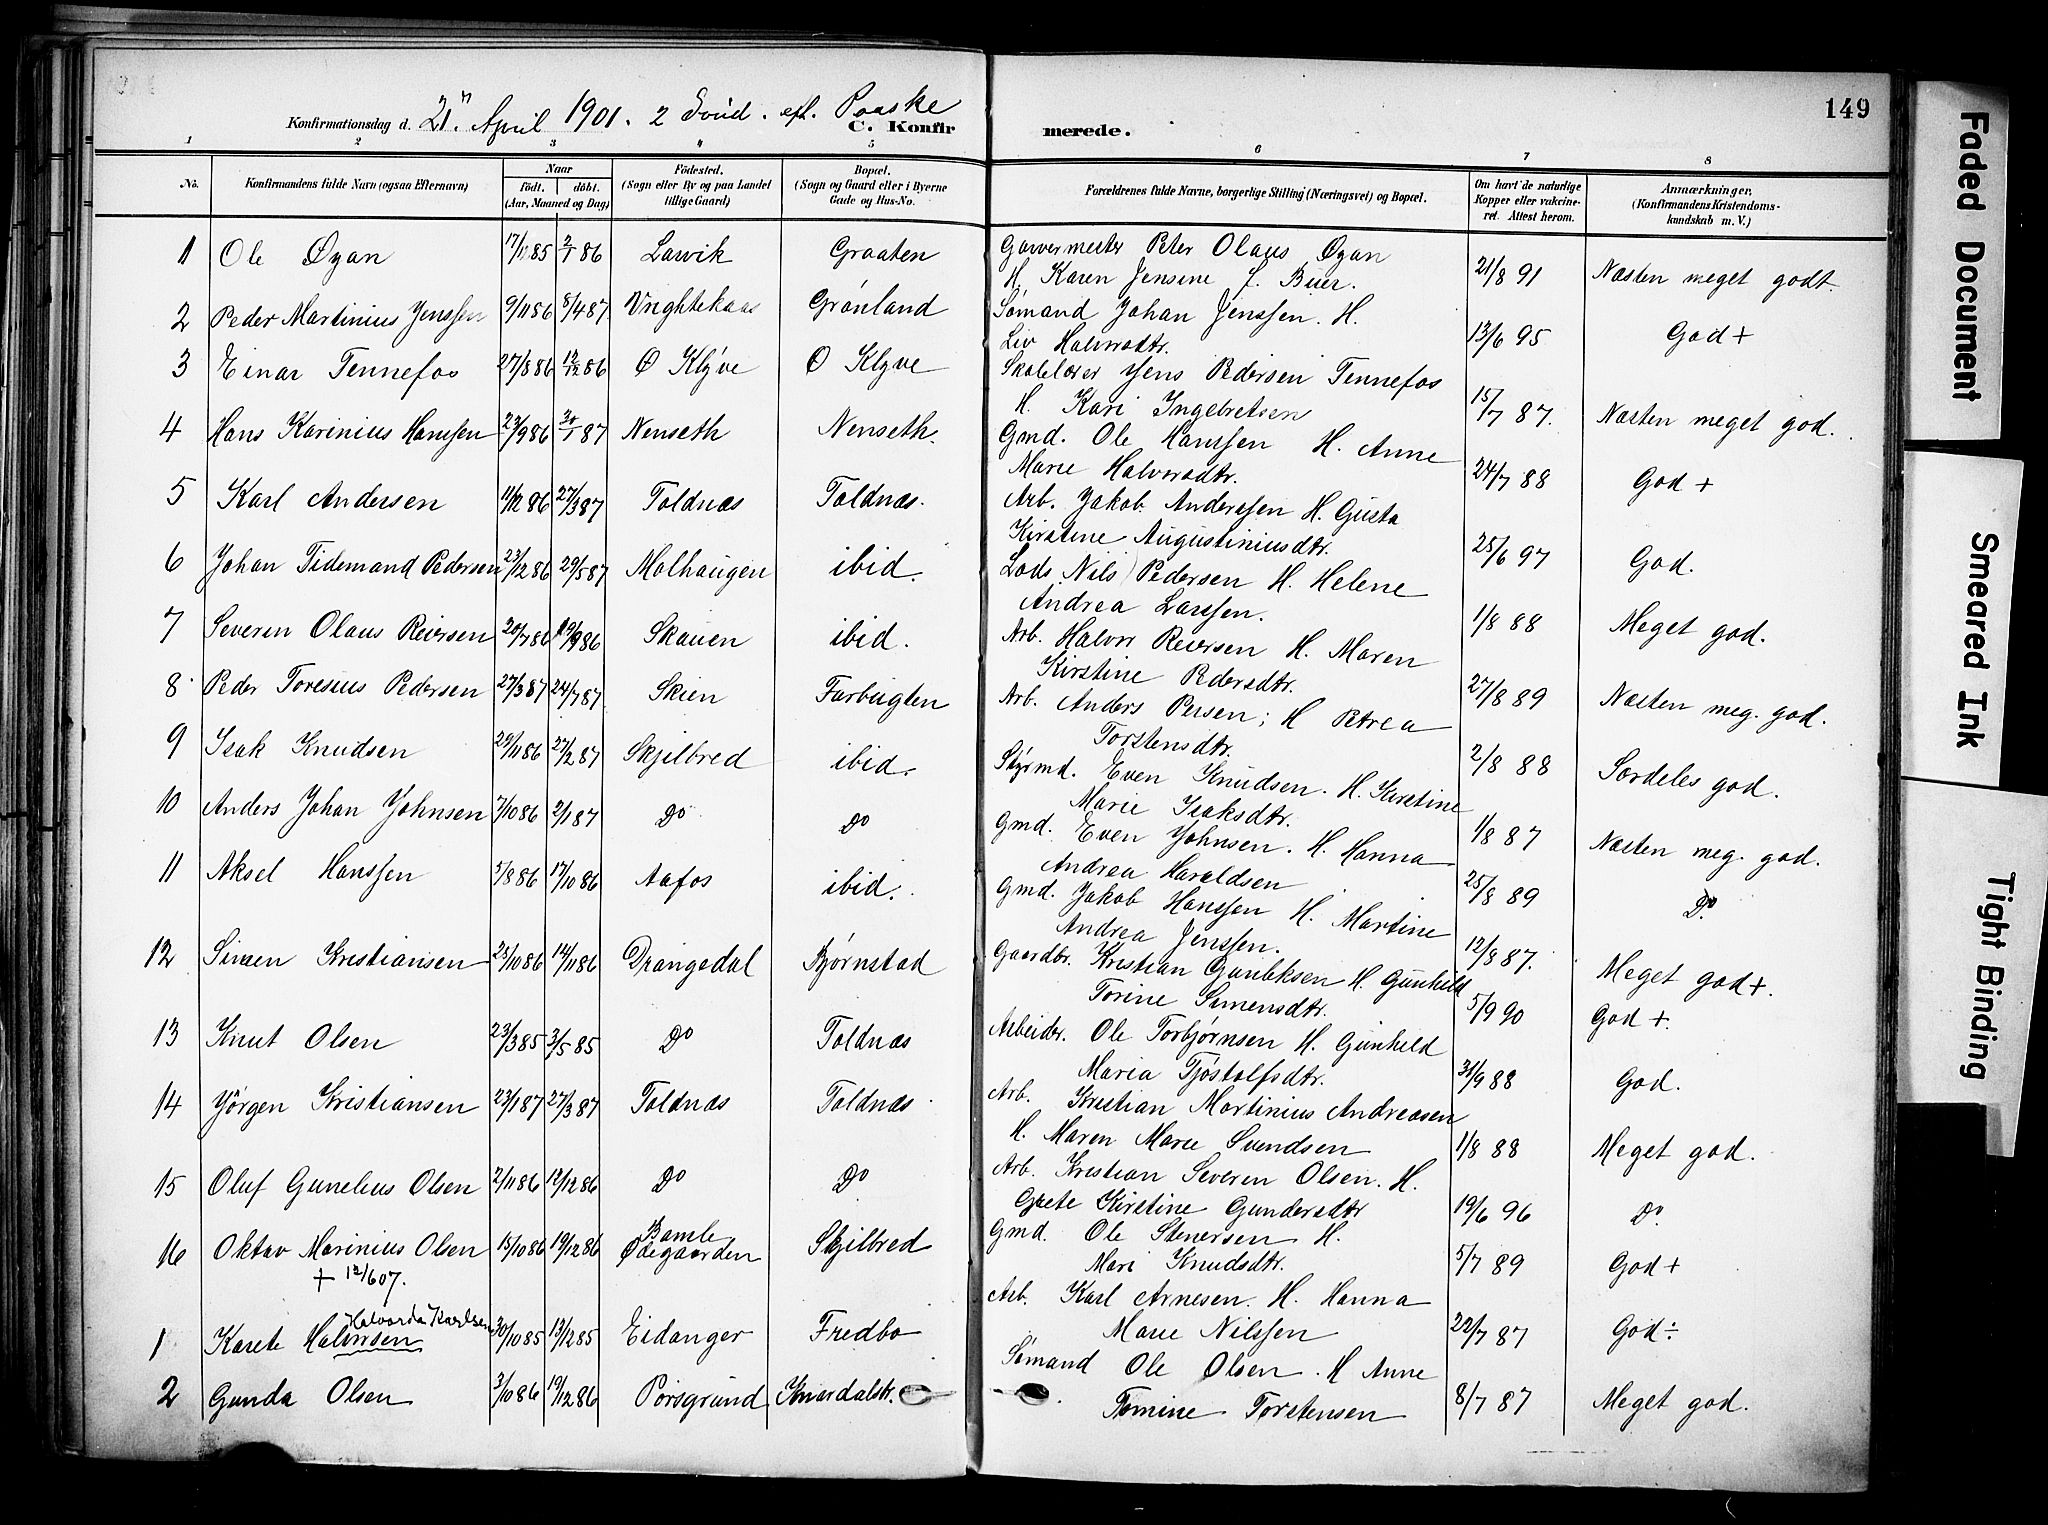 149
Konfirmationsdag d. 21n April 1901. 2 Sönd. eft. Paaske
C. Konfirmerede.
1 2 3 4 5 6 7 8
No. Konfirmandens fulde Navn (ogsaa Efternavn) Naar födt. döbt. (Aar, Maaned og Dag) Födested. (Sogn eller By og paa Landet tillige Gaard) Bopæl. (Sogn og Gaard eller i Byerne Gade og Hus-No. Forældrenes fulde Navne, borgerlige Stilling (Næringsvei) og Bopæl. Om havt de naturlige Kopper eller vakcineret. Attest herom. Anmærkninger. (Konfirmandens Kristendomskundskab m. V.)
1 Ole Øyan 17/11 85 2/1 86 Larvik Graaten Garvermester Peter Olaus Øyan
H. Karen Jensine f. Buer. 21/8 91 Næsten meget godt.
2 Peder Martinius Jenssen 9/11 56 8/4 87 Grønland Sømand Johan Jenssen. H.
Liv Halvorsdtr. 13/6 95 God +
3 Einar Tennefos 27/8 86 12/12 86 Ø Klyve Ø Klyve Skolelærer Jens Pedersen Tennefos
H. Kari Ingebretsen 15/7 87. Næsten meget god.
4 Hans Karinius Hanssen 23/9 86 30/1 87 Nenseth Nenseth. Gmd. Ole Hanssen H. Anne
Marie Halvorsdtr. 24/7 88 God +
5 Karl Andersen 11/12 86 27/3 87 Toldnæs Toldnæs. Arb. Jakob Anderssen H. Gusta
Kirstine Augustiniusdtr. 25/6 97 God.
6 Johan Tidemand Pedersen 23/12 86 29/5 87 Molhaugen ibid. Lods Nils Pedersen H. Helene
Andrea Larssen. 1/8 88 Meget god.
7 Severin Olaus Reiersen 20/7 86 19/9 86 Skauen ibid. Arb. Halvor Reiersen H. Maren
Kirstine Pedersdtr. 27/8 89 Næsten meg. god.
8 Peder Toresius Pedersen 27/3 87 24/7 87. Skien Farbugten Arb. Anders Persen; H Petrea
Torstensdtr. 2/8 88 Særdeles god.
9 Isak Knudsen 29/11 86 27/2 87 Skjilbred ibid. Styrmd. Even Knudsen. H. Kirstine
Marie Isaksdtr. 1/8 87 Næsten meg. god.
10 Anders Johan Johnsen 7/10 86 2/1 87 Do Do Gmd. Even Johnsen. H. Hanna
Andrea Haraldsen 25/8 89 Do.
11 Aksel Hanssen 5/8 86 17/10 86 Aafos ibid. Gmd. Jakob Hanssen H. Martine
Andrea Jenssen. 12/8 87. Meget god +.
12 Simen Kristiansen 25/10 86 14/11 86 Drangedal Bjørnstad Gaardbr. Kristian Gunleksen H. Gunhild
Torine Simensdtr. 5/9 90 God +.
13 Knut Olsen 23/3 85 3/5 85 Do Toldnæs Arbeider. Ole Torbjørnsen H. Gunhild
Maria Tjøstolfsdtr. 31/9 88 God.
14 Jörgen Kristiansen 23/1 87 27/3 87 Toldnæs Toldnæs. Arb. Kristian Martinius Andreasen
H. Maren Marie Svendsen 1/8 88 Meget god.
15 Oluf Gunelius Olsen 2/11 86 12/12 86 Do Do Arb. Kristian Severin Olsen. H.
Grete Kirstine Gundersdtr 19/6 96 Do.
16 Oktav Marinius Olsen 15/10 86 19/12 86 Bamle Ødegaarden Skjilbred Gmd. Ole Stenersen H.
+ 12/6 07. Mari Knudsdtr. 5/7 89 God +
1 Karete Halvorsen Halvorda Karlsen 30/10 85 13/12 85 Eidanger Fredbo Arb. Karl Arnesen. H. Hanna
Marie Nilssen 22/7 87 God ÷
2 Gunda Olsen 3/10 86 19/12 86 Porsgrund Knardalstr. Sømand Ole Olsen. H Anne
Tomine Torstensen 8/7 87 Meget god.
Faded Document
Smeared Ink
Tight Binding